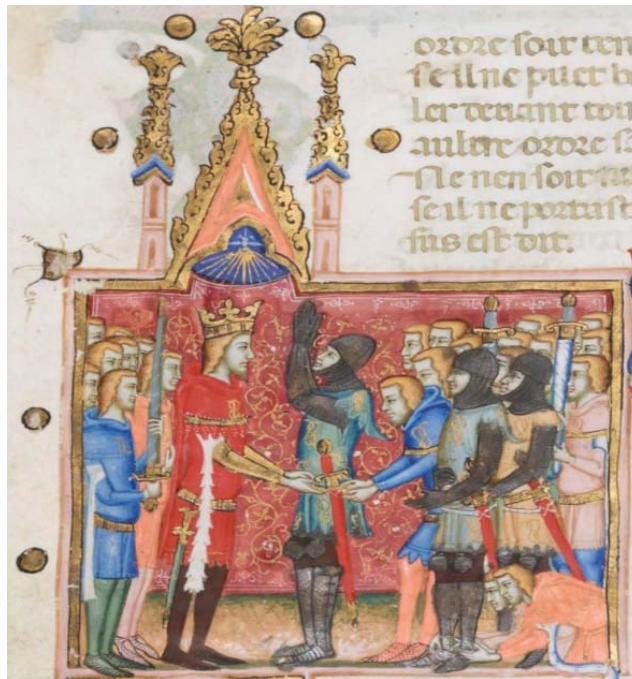 ordre soit ten
se il ne puet b
ler devant tou
aultre ordre s
si le nen soit
se il ne portast
sus est dit.